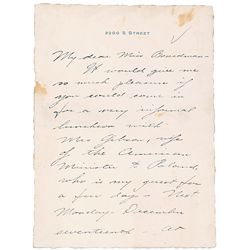 2300 S STREET
My dear Miss Boardman -
It would give me
so much pleasure if
you would come in
for a very informal
luncheon with
Mrs Gibson, wife
of the American
Minister to Poland,
who is my guest for
a few days - Next
Monday - December
seventeenth - at